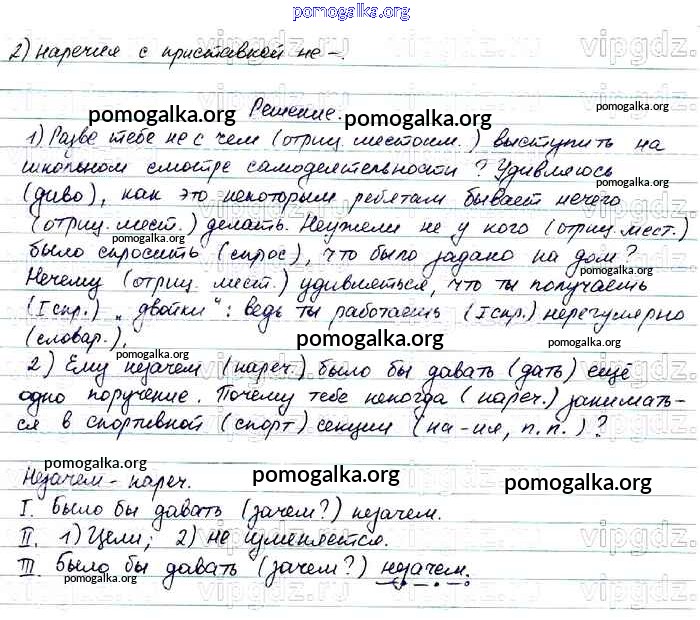 pomogalka.org
2) наречия с приставкой не-.
Решение.
pomogalka.org
pomogalka.org
1) Разве тебе не с чем (отриц. местоим.) выступить на
школьном смотре самодеятельности? Удивляюсь
pomogalka.org
(диво), как это некоторым ребятам бывает нечего
(отриц. мест.) делать. Неужели не у кого (отриц. мест.)
pomogalka.org
было спросить (спрос), что было задано на дом?
pomogalka.org
Нечему (отриц. мест.) удивляться, что ты получаешь
(I спр.) „двойки“: ведь ты работаешь (I спр.) нерегулярно
(словар.).
pomogalka.org
pomogalka.org
2) Ему незачем (нареч.) было бы давать (дать) ещё
одно поручение. Почему тебе некогда (нареч.) занимать-
ся в спортивной (спорт) секции (на -ия, п.п.)?
pomogalka.org
Незачем - нареч.
pomogalka.org
pomogalka.org
I. Было бы давать (зачем?) незачем.
II. 1) Цели; 2) не изменяется.
III. Было бы давать (зачем?) незачем.
pomogalka.org
pomogalka.org